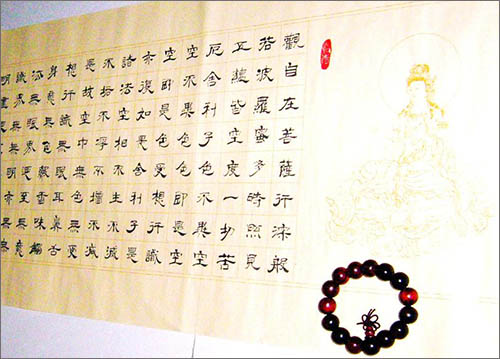 觀自在菩薩行深般
若波羅蜜多時照見
五蘊皆空度一切苦
厄舍利子色不異空
空不異色色即是空
空即是色受想行識
亦復如是舍利子是
諸法空相不生不滅
不垢不淨不增不減
是故空中無色無受
想行識無眼耳鼻舌
身意無色聲香味觸
法無眼界乃至無意
識界無無明亦無無
明盡